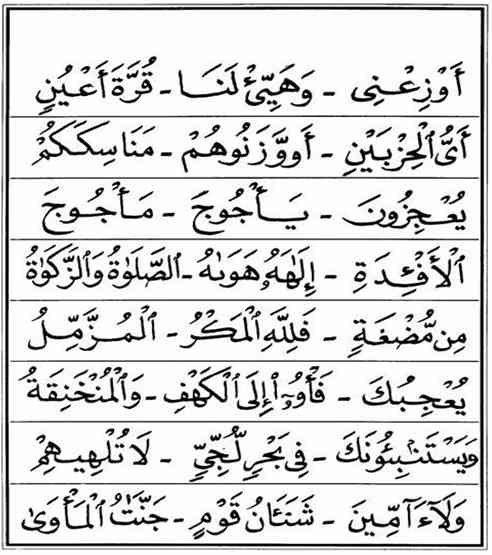 أَوْزِعْنِى - وَهَيِّئْ لَنَا - قُرَّةَ أَعْيُنٍ
أَىُّ ٱلْحِزْبَيْنِ - أَووَّزَنُوهُمْ - مَنَاسِكَكُمْ
يُعْجِزُونَ - يَأْجُوجَ - مَأْجُوجَ
ٱلْأَفْئِدَةِ - إِلَٰهَهُۥ هَوَىٰهُ - ٱلصَّلَوٰةُ وَٱلزَّكَوٰةُ
مِن مُّضْغَةٍ - فَلِلَّهِ ٱلْمَكْرُ - ٱلْمُزَّمِّلُ
يُعْجِبُكَ - فَأْوُۥٓا۟ إِلَى ٱلْكَهْفِ - وَٱلْمُنْخَنِقَةُ
وَيَسْتَنۢبِـُٔونَكَ - فِى بَحْرٍ لُّجِّىٍّ - لَا تُلْهِيهِمْ
وَلَآ ءَآمِّينَ - شَنَـَٔانُ قَوْمٍ - جَنَّٰتُ ٱلْمَأْوَىٰ